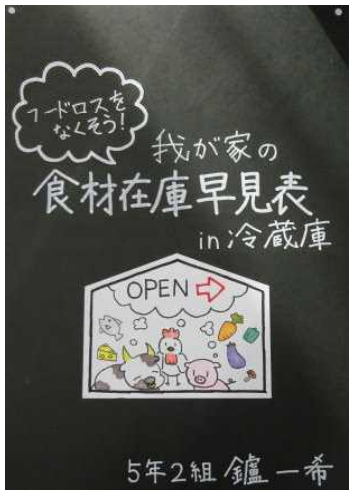 フードロスを
なくそう!
我が家の
食材在庫早見表
in冷蔵庫
OPEN
5年2組 鑪 一希